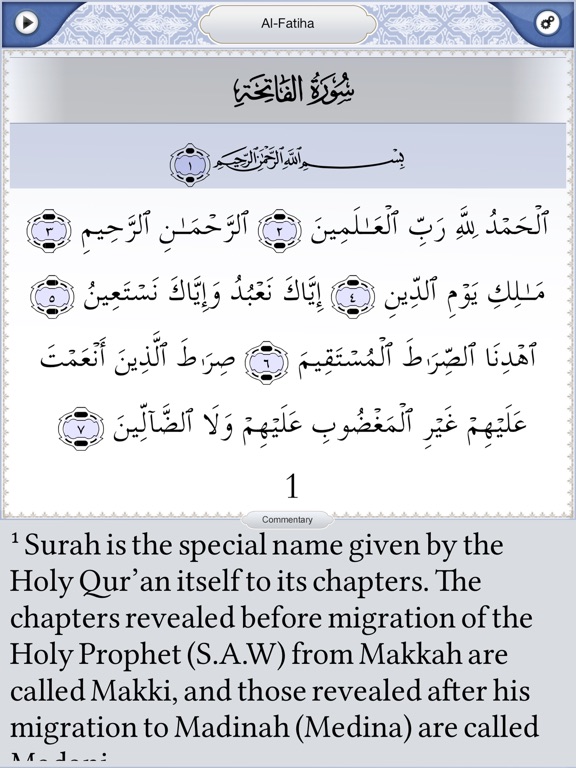 Al-Fatiha
سُورَةُ الفَاتِحَةِ
بِسْمِ ٱللَّهِ ٱلرَّحْمَٰنِ ٱلرَّحِيمِ ١
ٱلْحَمْدُ لِلَّهِ رَبِّ ٱلْعَـٰلَمِينَ ٢ ٱلرَّحْمَـٰنِ ٱلرَّحِيمِ ٣
مَـٰلِكِ يَوْمِ ٱلدِّينِ ٤ إِيَّاكَ نَعْبُدُ وَإِيَّاكَ نَسْتَعِينُ ٥
ٱهْدِنَا ٱلصِّرَٰطَ ٱلْمُسْتَقِيمَ ٦ صِرَٰطَ ٱلَّذِينَ أَنْعَمْتَ
عَلَيْهِمْ غَيْرِ ٱلْمَغْضُوبِ عَلَيْهِمْ وَلَا ٱلضَّآلِّينَ ٧
1
Commentary
¹ Surah is the special name given by the
Holy Qur’an itself to its chapters. The
chapters revealed before migration of the
Holy Prophet (S.A.W) from Makkah are
called Makki, and those revealed after his
migration to Madinah (Medina) are called